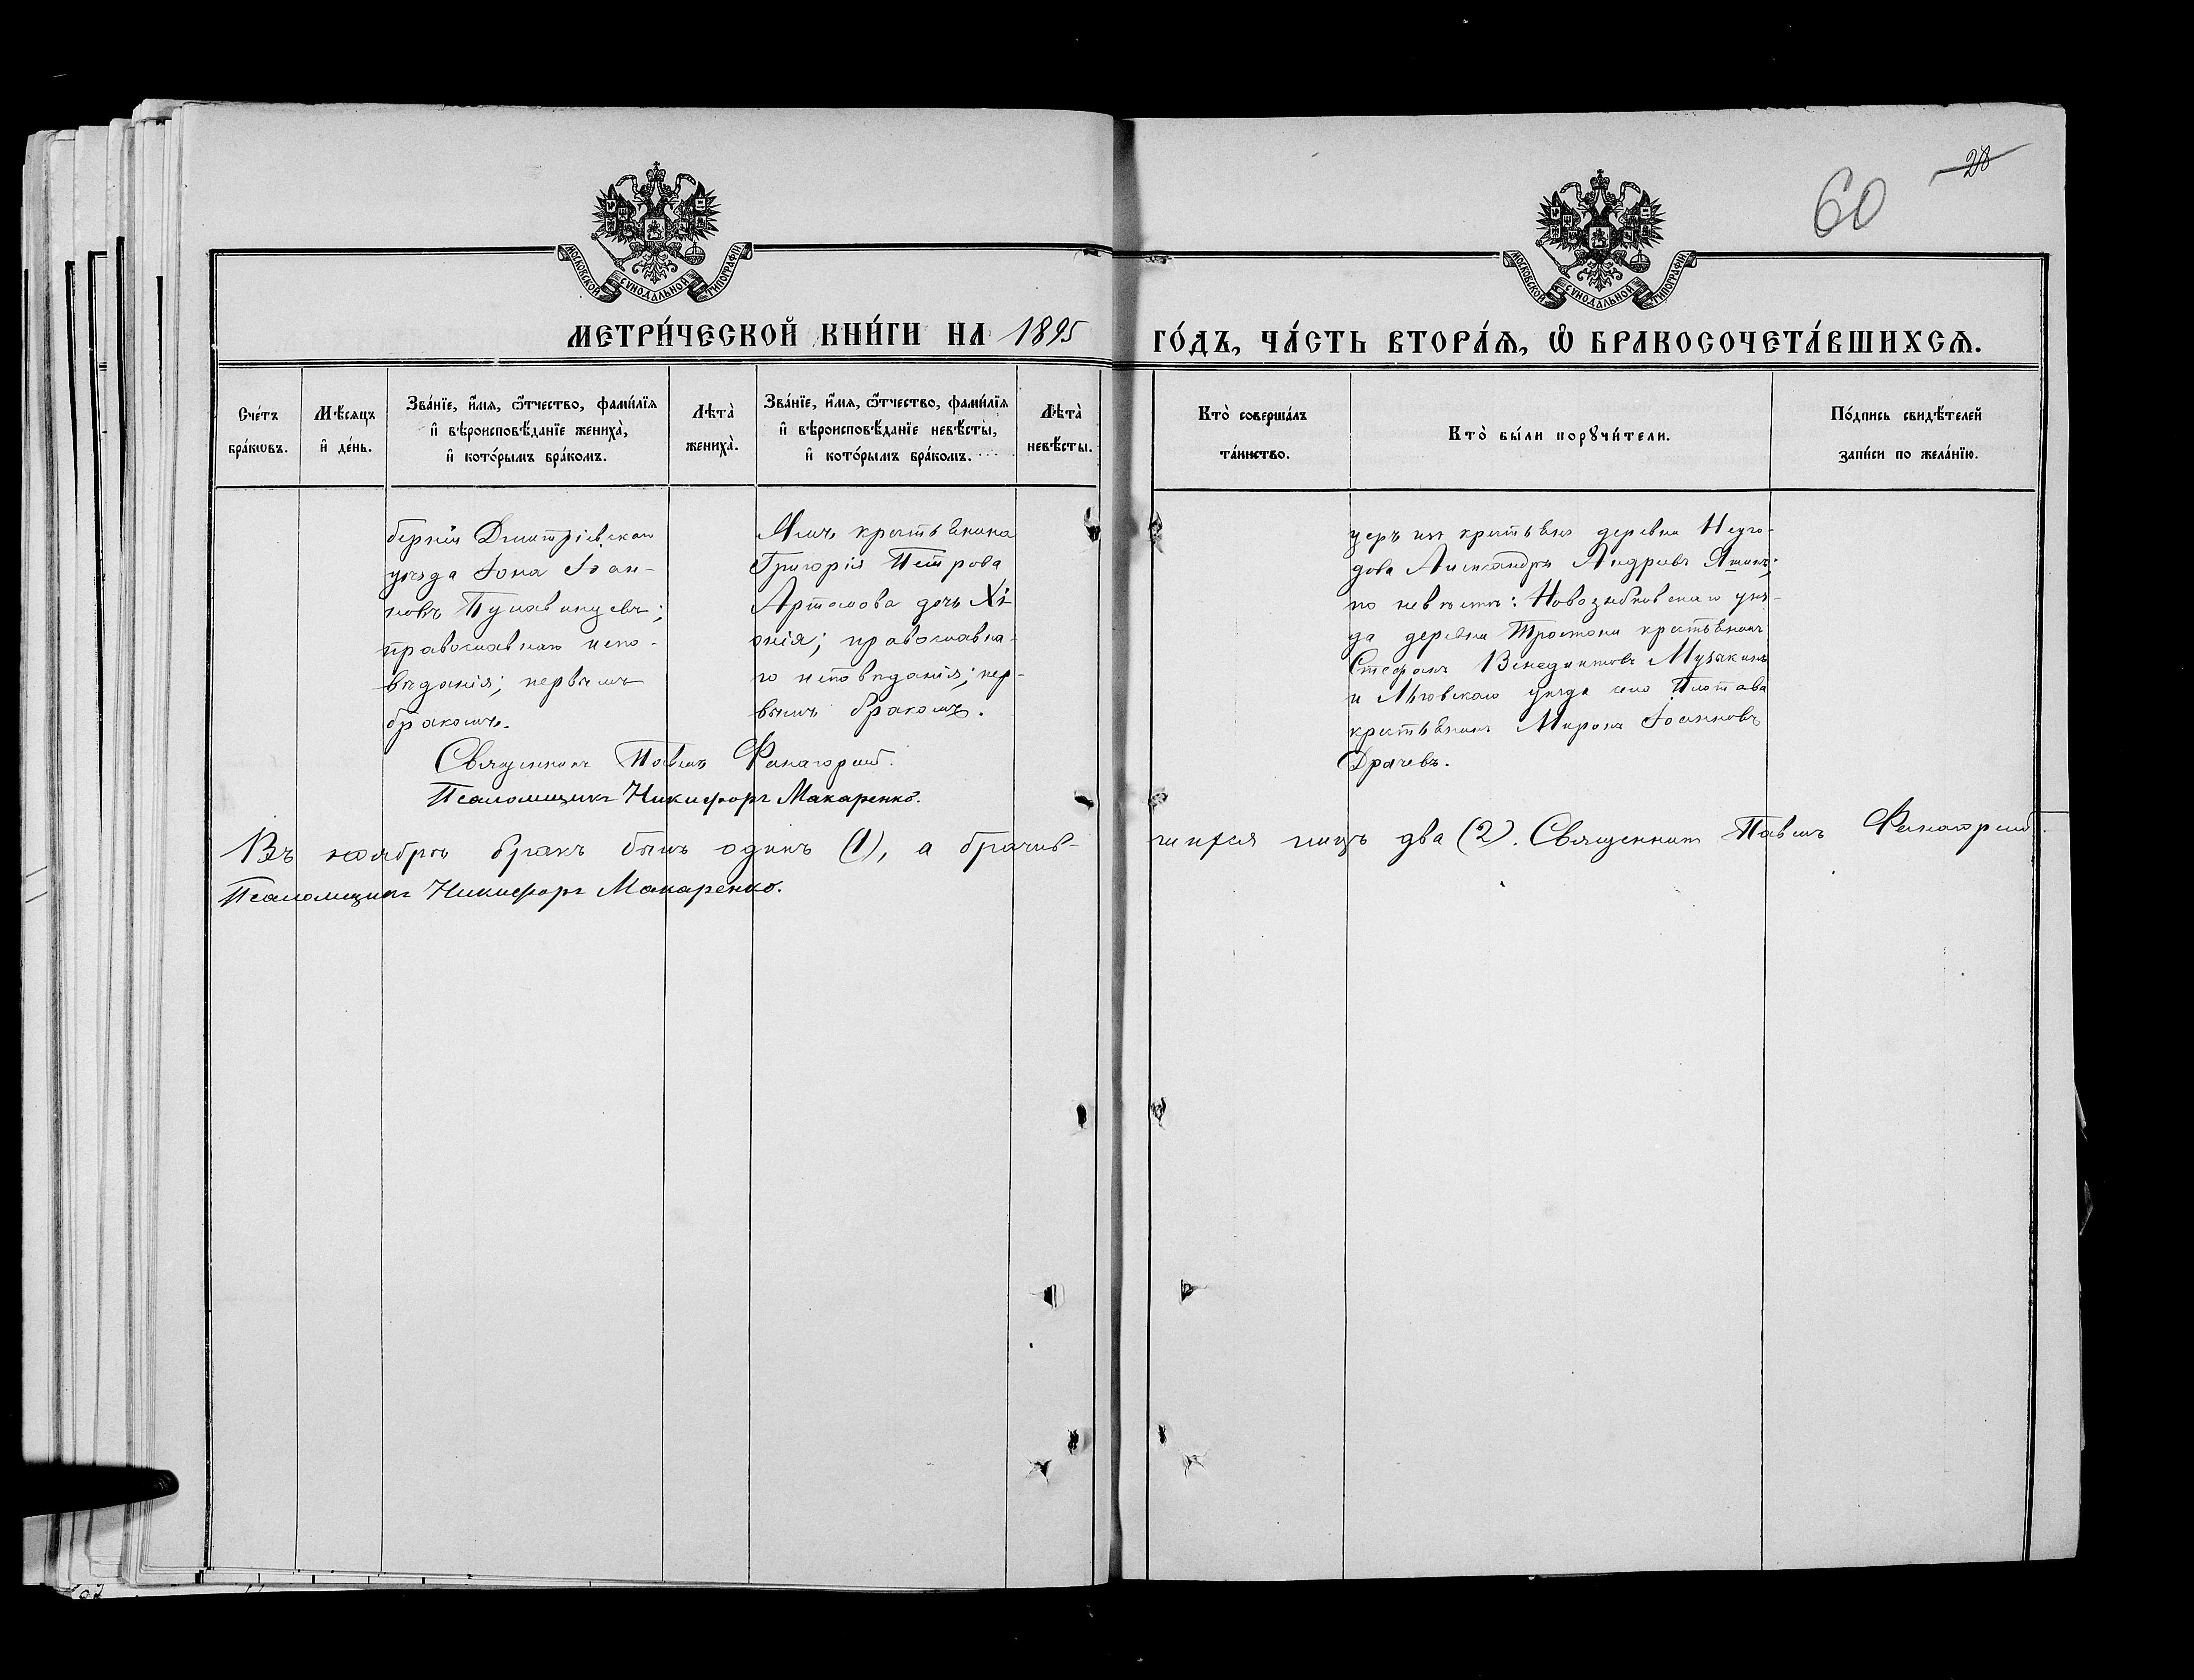 60
28
МОСКОВСКОЙ СѴНОДАЛЬНОЙ ТИПОГРАФІИ
МОСКОВСКОЙ СѴНОДАЛЬНОЙ ТИПОГРАФІИ
МЕТРИ́ЧЕСКОЙ КНИ́ГИ НА 1895 ГО́ДЪ, ЧА́СТЬ ВТОРА́Ѧ, Ѽ БРАКОСОЧЕТА́ВШИХСѦ.
Сче́тъ бра́кѡвъ.
Мѣ́сяцъ и҆ де́нь.
Зва́нїе, и҆́мѧ, ѻ҆́тчество, фами́лїѧ
и҆ вѣроисповѣ́данїе жениха̀,
и҆ кото́рымъ бра́комъ.
Лѣта̀ жениха̀.
Зва́нїе, и҆́мѧ, ѻ҆́тчество, фами́лїѧ
и҆ вѣроисповѣ́данїе невѣ́сты,
и҆ кото́рымъ бра́комъ.
Лѣта̀ невѣ́сты.
Кто̀ соверша́лъ та́инство.
Кто̀ бы́ли порꙋчи́тели.
По́дпись свидѣ́телей
за́писи по жела́нїю.
берніи Дмитріевскаго
уѣзда Іона Іоан-
новъ Пулавинцевъ;
православнаго испо-
вѣданія; первымъ
бракомъ.
крестьянина
Григорія Петрова
Артамова дочь Хі-
онія; православна-
го исповѣданія; пер-
вымъ бракомъ.
церъ изъ крестьянъ деревни Неуго-
дова Александръ Андреевъ
по невѣстѣ: Новозыбковскаго уѣз-
да деревни Тростани крестьянинъ
Стефанъ Венедиктовъ Музыкинъ
и Льговскаго уѣзда села Плотава
крестьянинъ Миронъ Іоанновъ
Драчевъ.
Священникъ Павелъ Фанагорскій.
Псаломщикъ Никифоръ Макаренко.
Въ ноябрѣ бракъ былъ одинъ (1), а брачив-шихся лицъ два (2). Священникъ Павелъ Фанагорскій.
Псаломщикъ Никифоръ Макаренко.